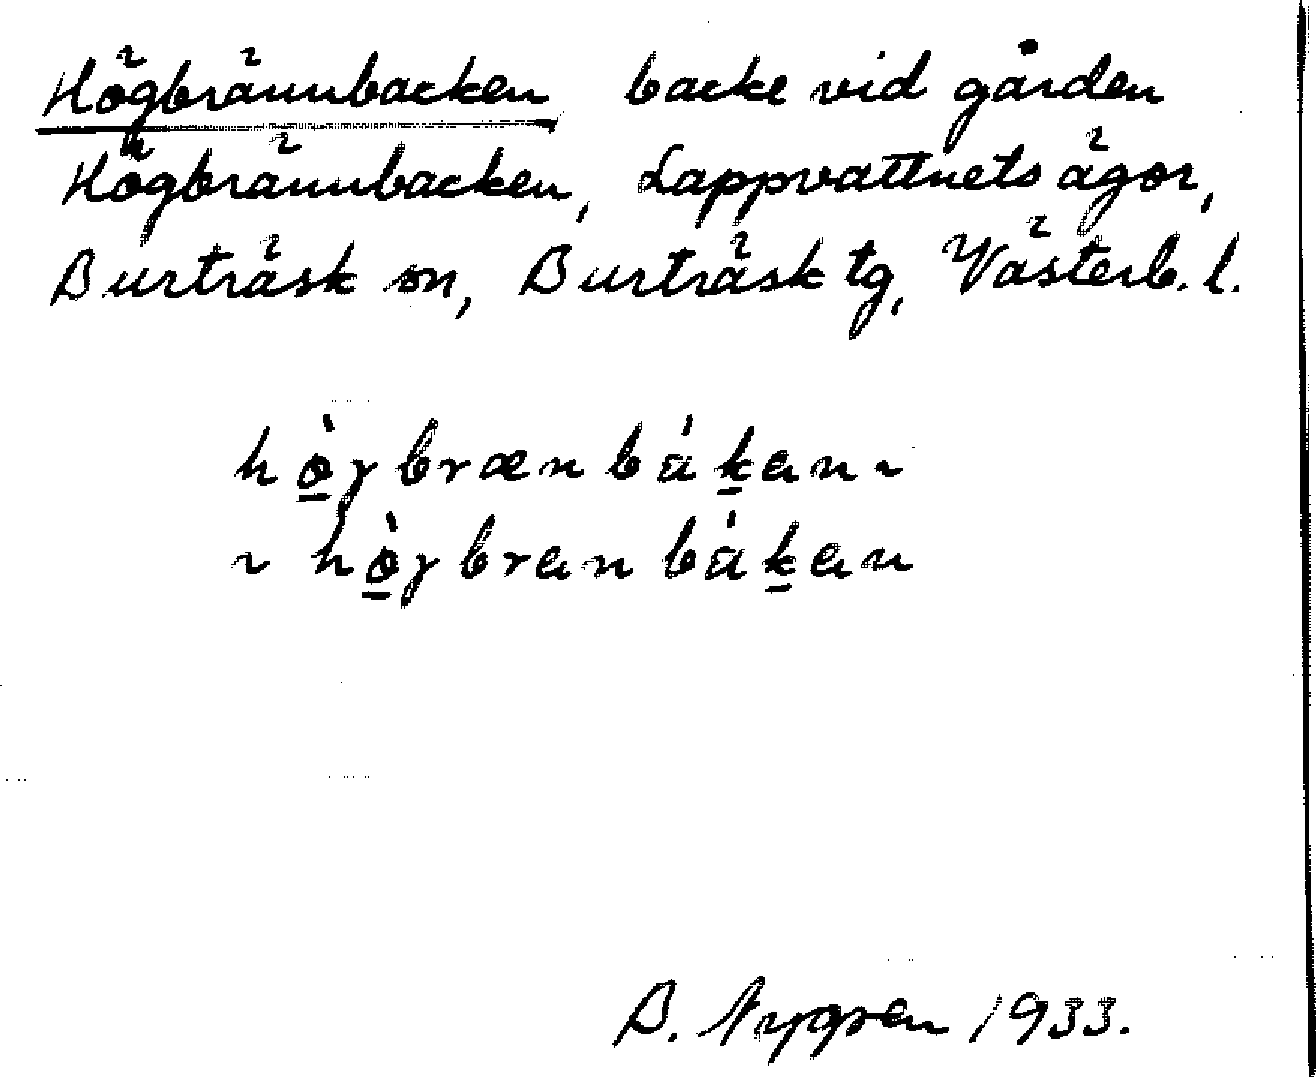 Högbrännbacken, backe vid gården
Högbrännbacken, Lappvattnets ägor,
Burträsk sn, Burträsk tg, Västerb. l.
hö̠̀gbrænbák̠en ~
~ hö̠̀gbranbák̠en
B. Nygren 1933.